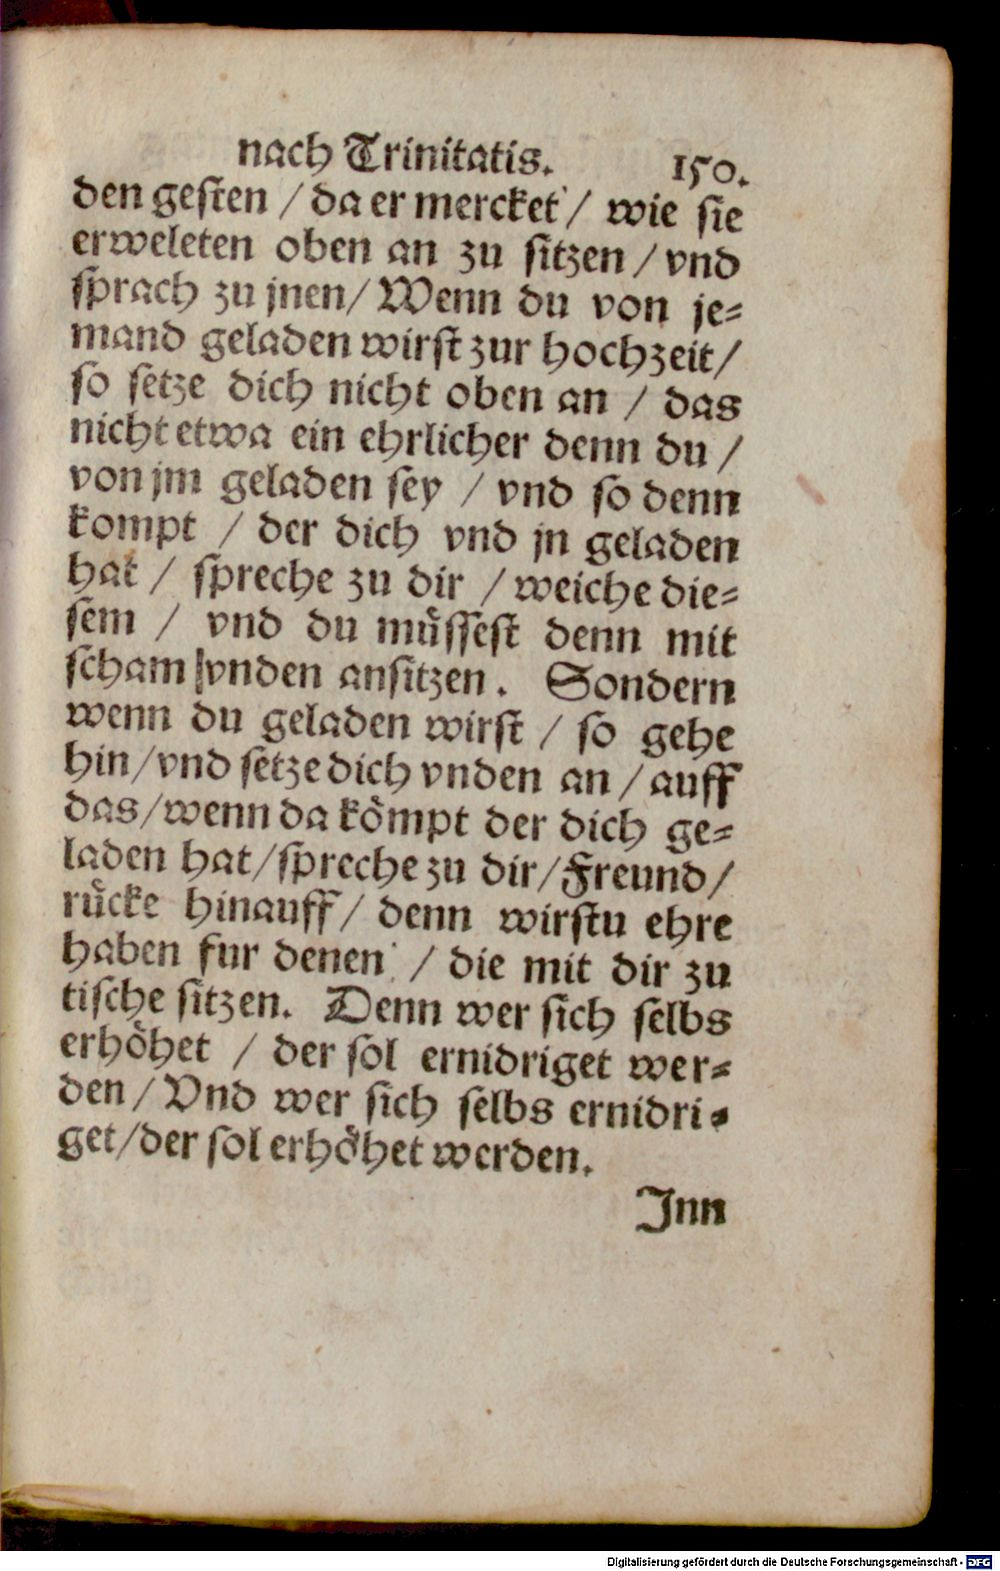 nach Trinitatis. 150.
den gesten / da er mercket / wie sie
erweleten oben an zu sitzen / vnd
sprach zu jnen / Wenn du von je⸗
mand geladen wirst zur hochzeit /
so setze dich nicht oben an / das
nicht etwa ein ehrlicher denn du /
von jm geladen sey / vnd so denn
kompt / der dich vnd jn geladen
hat / spreche zu dir / weiche die⸗
sem / vnd du muͤssest denn mit
scham vnden ansitzen. Sondern
wenn du geladen wirst / so gehe
hin / vnd setze dich vnden an / auff
das / wenn da koͤmpt der dich ge⸗
laden hat / spreche zu dir / Freund /
ruͤcke hinauff / denn wirstu ehre
haben fur denen / die mit dir zu
tische sitzen. Denn wer sich selbs
erhoͤhet / der sol ernidriget wer⸗
den / Vnd wer sich selbs ernidri⸗
get / der sol erhoͤhet werden.
Jnn
Digitalisierung gefördert durch die Deutsche Forschungsgemeinschaft - DFG